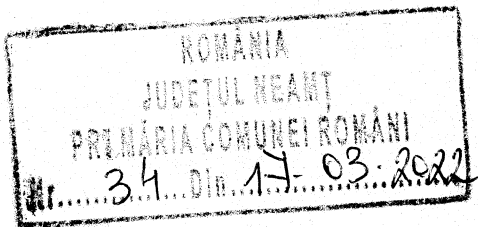 ROMÂNIA
JUDEŢUL NEAMŢ
PRIMĂRIA COMUNEI ROMÂNI
Nr......34...Din...17.03.2022